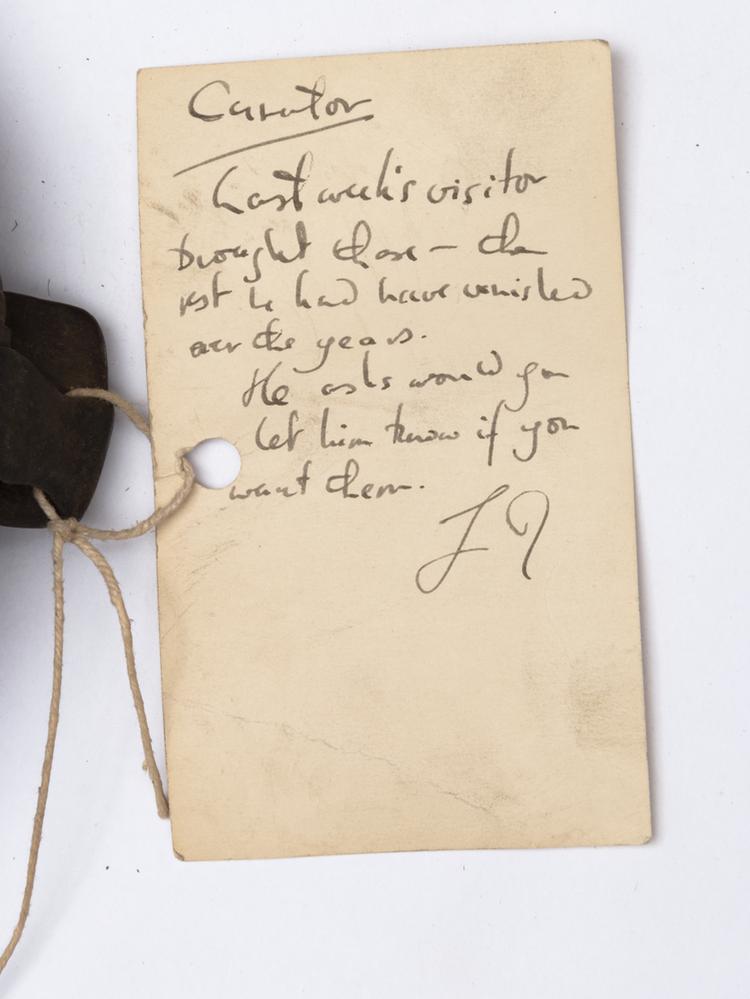 Curator
Last week's visitor
brought these – the
rest he had have vanished
over the years.
He asks would you
let him know if you
want them.